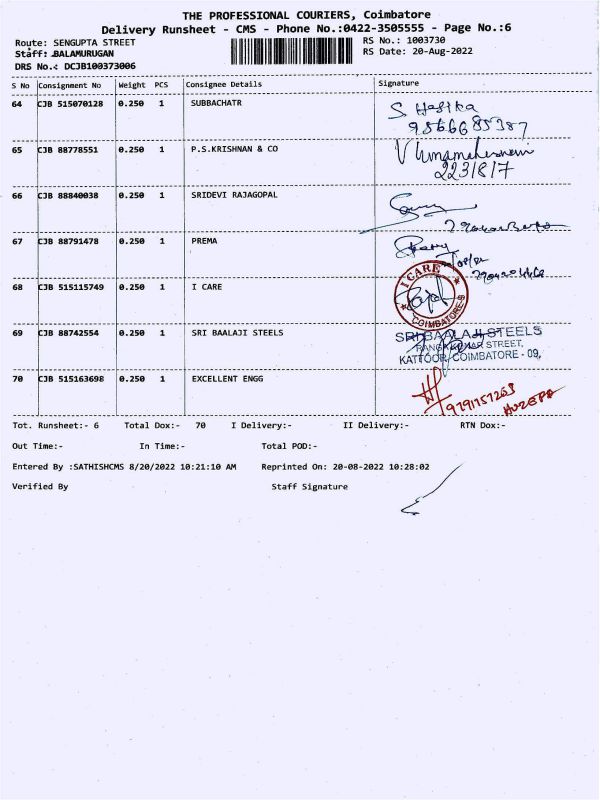 THE PROFESSIONAL COURIERS, Coimbatore
Delivery Runsheet - CMS - Phone No.:0422-3505555 - Page No.:6
Route: SENGUPTA STREET
RS No.: 1003730
Staff: BALAMURUGAN
RS Date: 20-Aug-2022
DRS No.: DCJB100373006
S No Consignment No Weight PCS Consignee Details Signature
64 CJB 515070128 0.250 1 SUBBACHATR
S. Hasika
9566685387
65 CJB 88778551 0.250 1 P.S.KRISHNAN & CO
2231817
66 CJB 88840038 0.250 1 SRIDEVI RAJAGOPAL
67 CJB 88791478 0.250 1 PREMA
68 CJB 515115749 0.250 1 I CARE
I CARE
COIMBATORE-9
69 CJB 88742554 0.250 1 SRI BAALAJI STEELS
SRI BAALAJI STEELS
STREET,
KATTOOR, COIMBATORE - 09,
70 CJB 515163698 0.250 1 EXCELLENT ENGG
9791157263
Tot. Runsheet:- 6 Total Dox:- 70 I Delivery:- II Delivery:- RTN Dox:-
Out Time:- In Time:- Total POD:-
Entered By :SATHISHCMS 8/20/2022 10:21:10 AM Reprinted On: 20-08-2022 10:28:02
Verified By Staff Signature